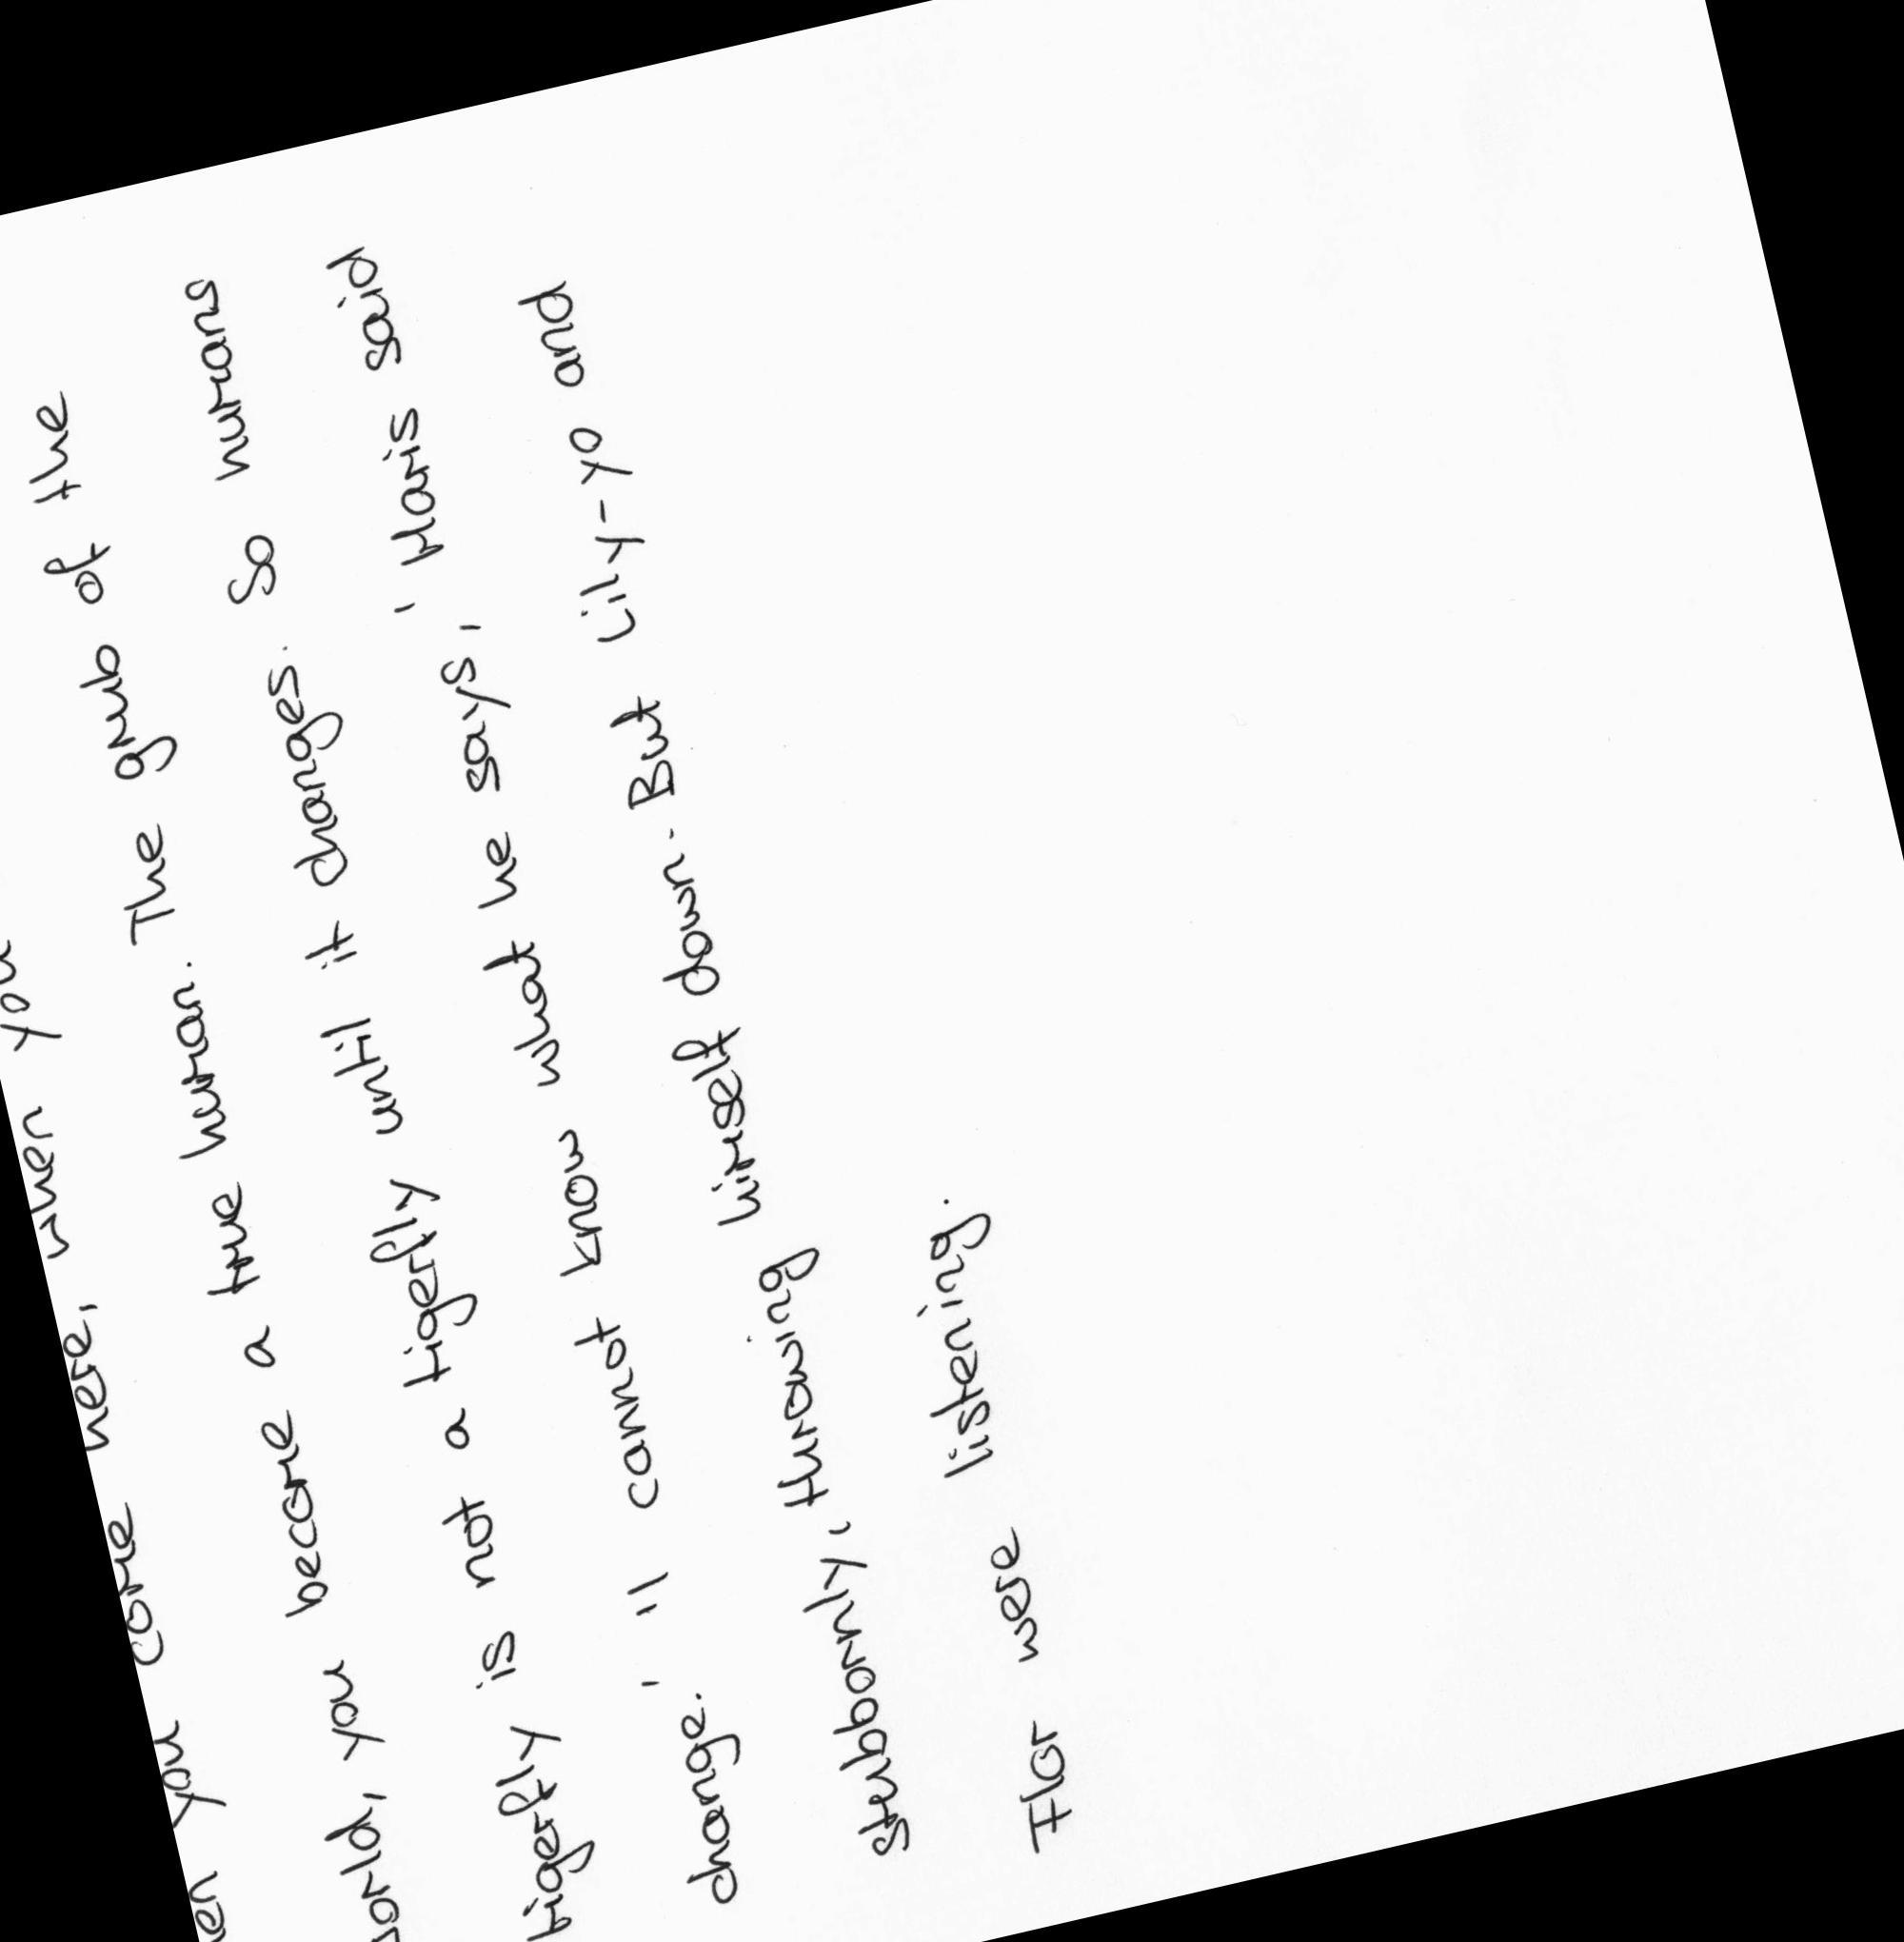 you come here, when you
world, you become a true human. The grub of the
tigerfly is not a tigerfly until it changes. So humans
change.' 'I cannot know what he says,' Haris said
stubbornly, throwing himself down. But Lily-yo and
Flor were listening.